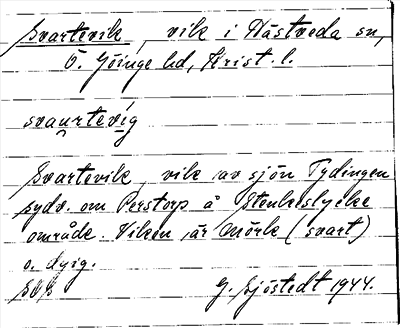 Svartevik, vik i Hästveda sn,
Ö. Göinge hd, Krist. l.
svau̯rtevi̱g
Svartevik, vik av sjön Tydingen
sydv. om Perstorp å Stenkeslycke
område. Viken är mörk (svart)
o. dyig.
G. Sjöstedt 1944.